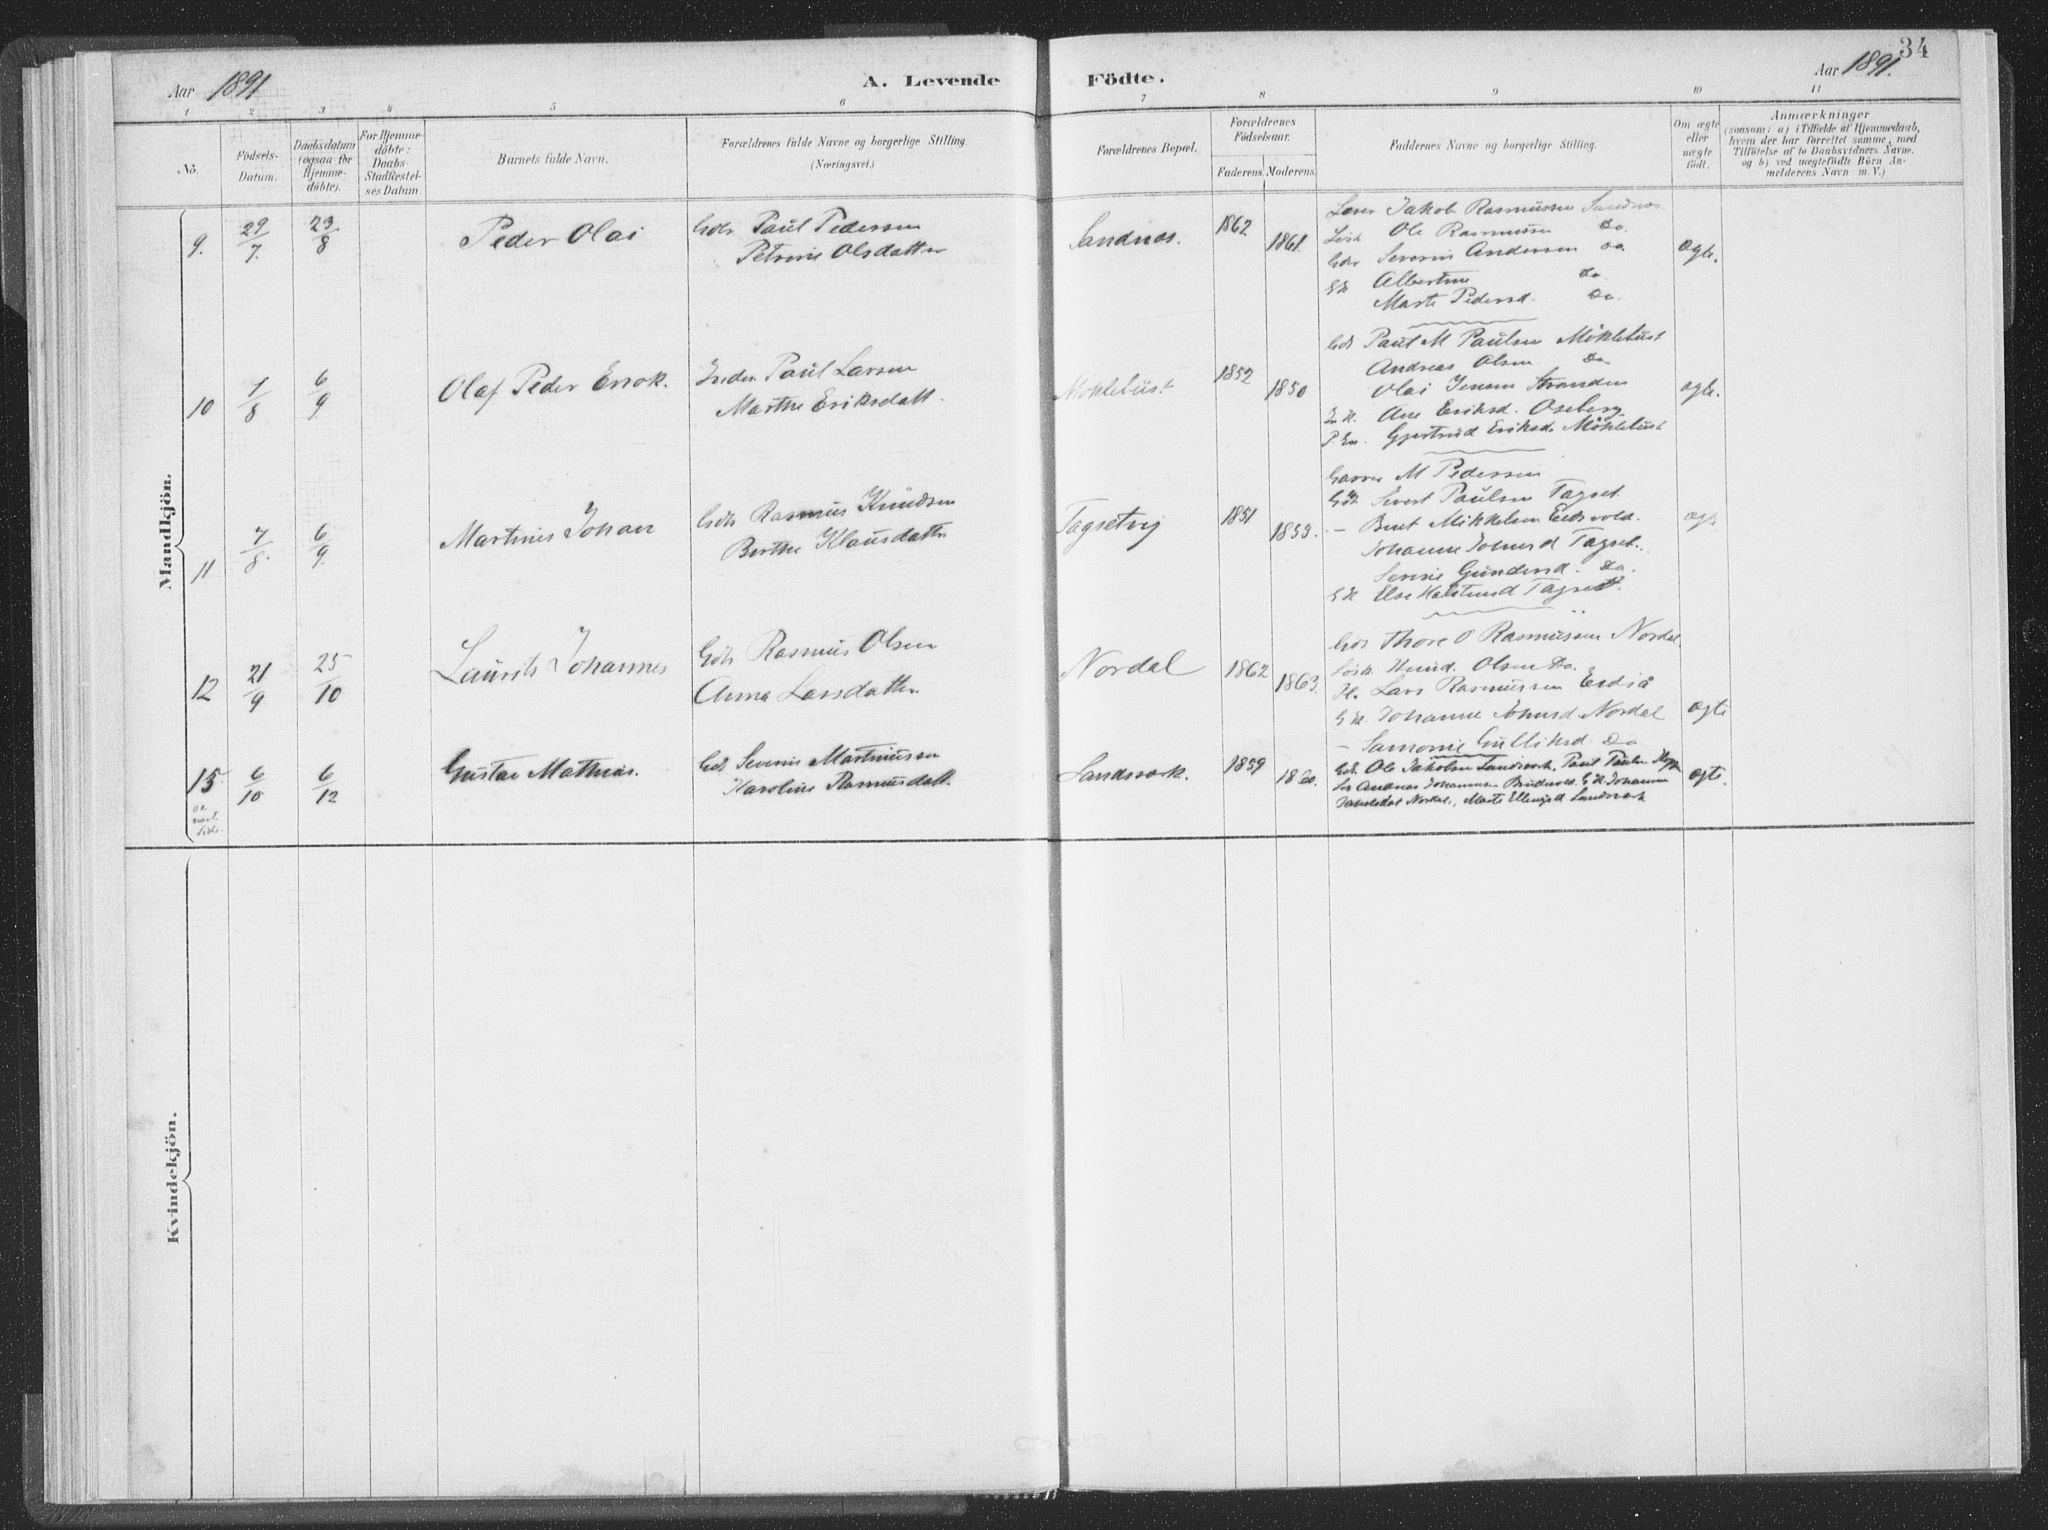 Aar 1891
A. Levende Födte.
Aar 1891.
34
1 2 3 4 5 6 7 8 9 10 11
No.
Födsels-
Datum.
Daabsdatum
(ogsaa for
Hjemme-
döbte).
For Hjemme-
döbte:
Daabs-
Stadfæstel-
ses Datum.
Barnets fulde Navn.
Forældrenes fulde Navne og borgerlige Stilling.
(Næringsvei.)
Forældrenes Bopæl.
Forældrenes
Födselsaar.
Faderens. Moderens.
Faddernes Navne og borgerlige Stilling.
Om ægte
eller
uægte
födt.
Anmærkninger
(saasom: a) i Tilfælde af Hjemmedaab,
hvem der har forrettet samme, med
Tilföielse af to Daabsvidners Navne.
og b) ved uægtefödte Börn An-
melderens Navn m. V.)
Mandkjön.
9. 29/7. 23/8 Peder Olai
Paul Pedersen
Petrine Olsdatter
Sandnæs. 1862 1861.
Jakob Rasmussen Sandnæs
Ole Rasmussen Do.
Severin Andersen Do
Albertine Do.
Marte Pedersd. Do.
ægte.
10 1/8 6/9 Olaf Peder Enok.
Inder. Paul Larsen
Marthe Eriksdatt.
Möklebust 1852 1850
Paul M Paulsen Möklebust
Andreas Olsen Do
Olai Jensen Stranden
Ane Eriksd. Oseberg
Gjertrud Eriksd. Möklebust
ægte.
11 7/8. 6/9. Martinus Johan
Rasmus Knudsen
Berthe Klausdatter
Tagsetvig 1851 1853.
M Pedersen
Sivert Paulsen Tagset
Mikkelsen
Johanne Tagset.
Gundersd. Do.
Else Tagset.
ægte
12 21/9 25/10 Laurits Johannes
Rasmus Olsen
Anna Larsdatter.
Nordal 1862 1863.
Thore O Rasmussen Nordal.
Olsen Do.
Lars Rasmussen
Johanne Nordal
Gulliksd Do
ægte
13 6/10 6/12 Gustav Mathias.
Severin Martinussen
Karoline Rasmusdatt.
Sandsvæk. 1859 1860.
Ole Jakobsen Sandsvæk Paul
Andreas Johannesen Johanne
Nordal, Marte Sandsvæk
ægte.
Kvindekjön.